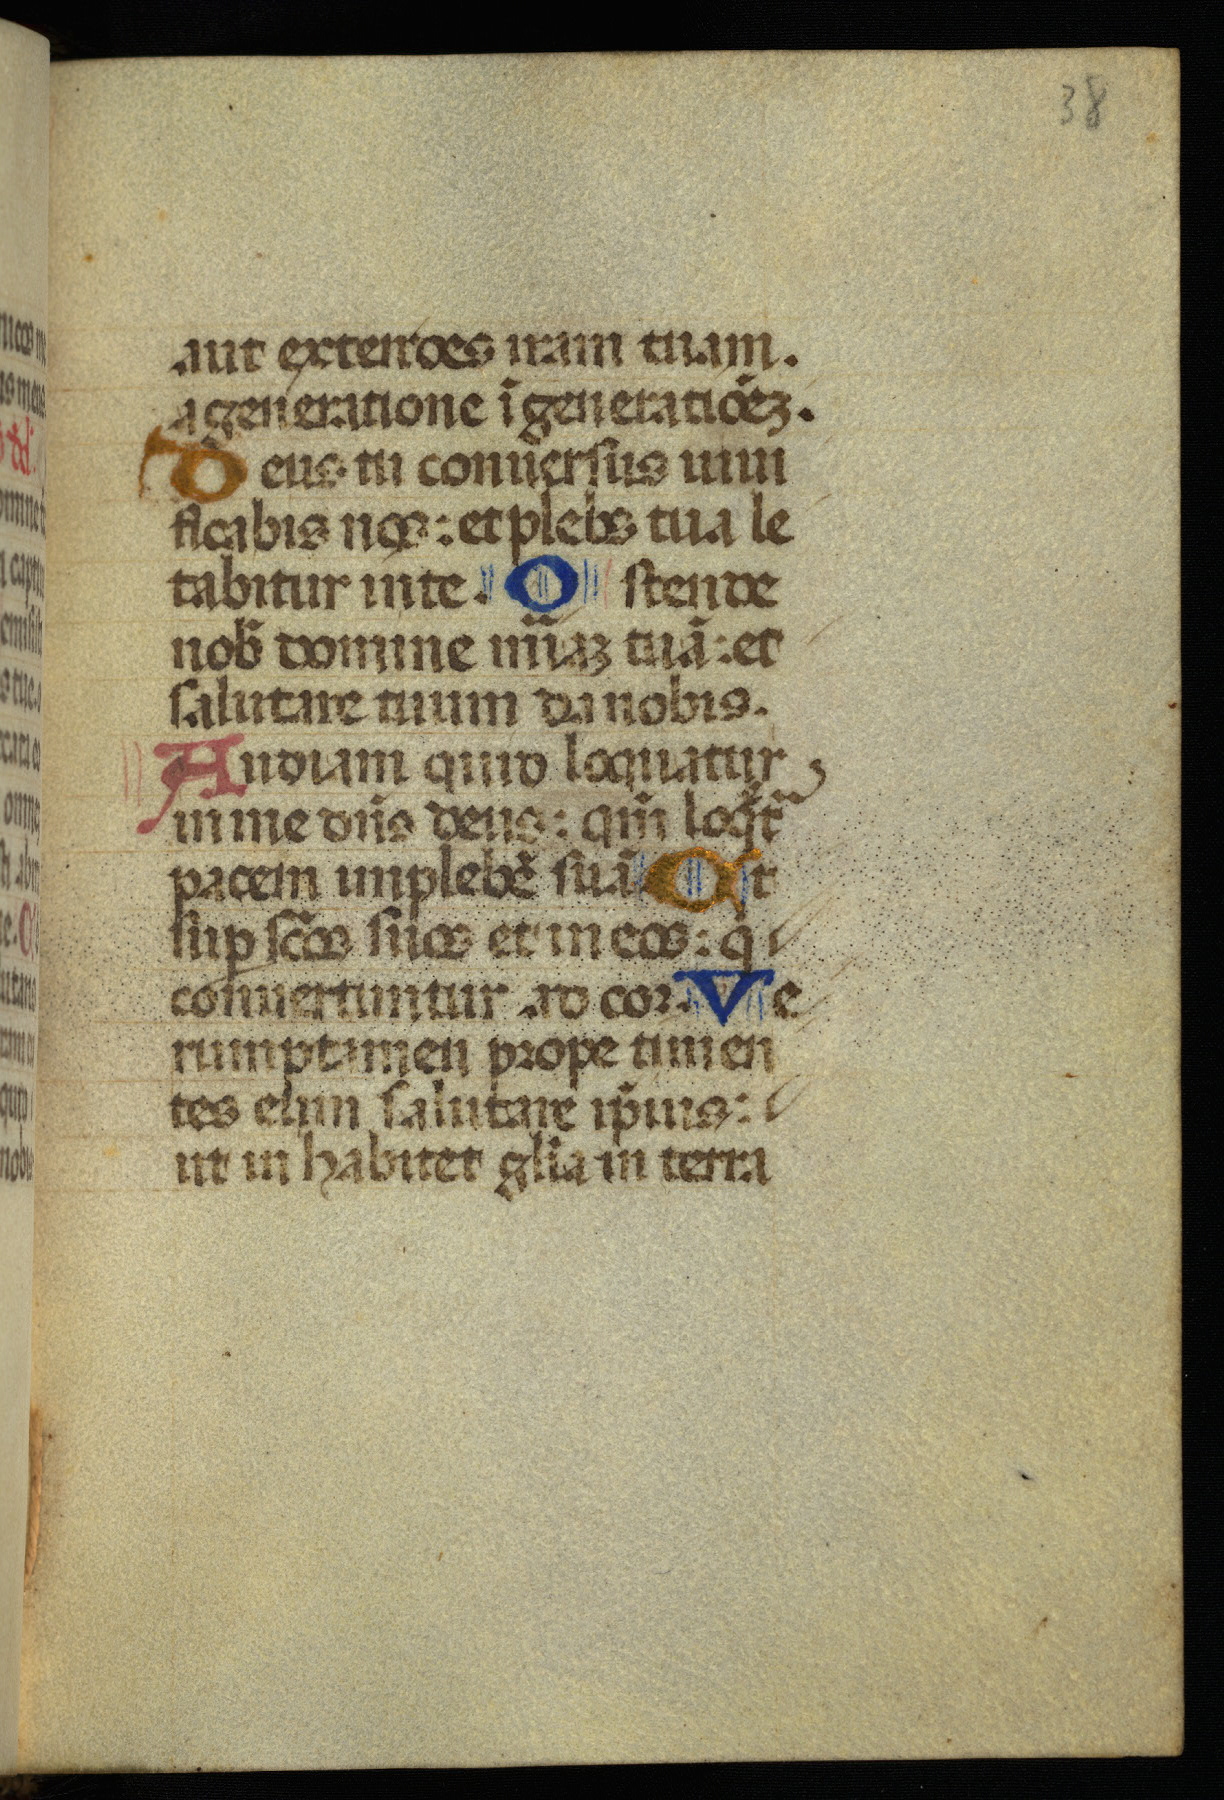 38
aut extendes iram tuam.
a generatione ī generatiōēz.
Deus tu conuersus uiui
ficabis nos: et plebs tua le
tabitur inte. Ostende
nob̄ domine mīaz tuā: et
salutare tuum da nobis.
Audiam quid loquatur
in me dn̄s deus: qm̄ loqt̄
pacem inplebē suā Et
sup sc̄os suos et in eos: q
conuertuntur ad cor. Ve
rumptamen prope timen
tes eum salutare ip̄ius:
ut in habitet glīa in terra